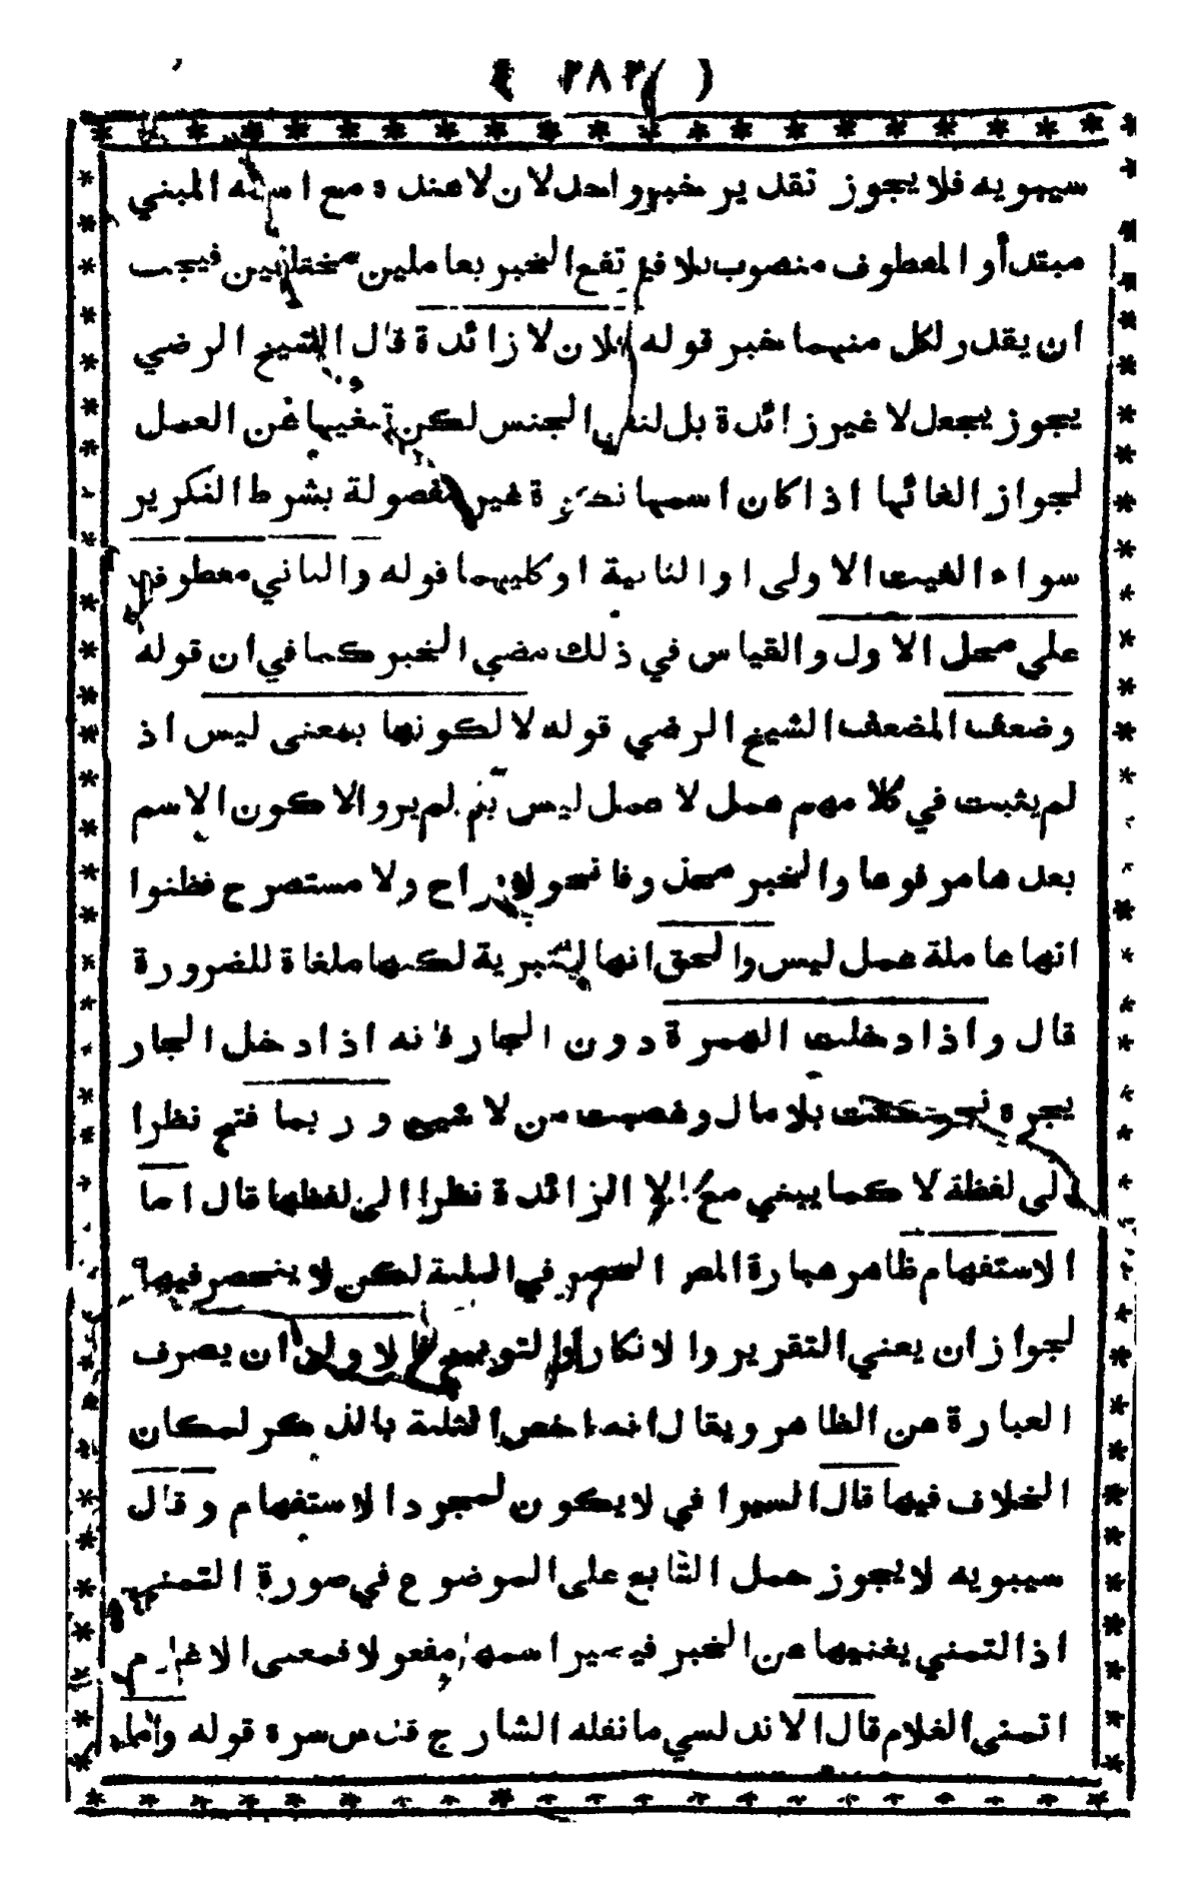 ( ٢٨٢ )
سيبويه فلا يجوز تقدير خبر واحد لان لا عنده مع اسمه المبني
مبتدأ و المعطوف منصوب بلا فيرتفع الخبر بعاملين مختلفين فيجب
ان يقدر لكل منهما خبر قوله فلان لا زائدة قال الشيخ الرضي
يجوز يجعل لا غير زائدة بل لنفي الجنس لكن تغيها عن العمل
لجواز الغائها اذا كان اسمها نكرة غير مفصولة بشرط التكرير
سواء الغيت الاولى او الثانية او كليهما قوله والثاني معطوف
على محل الاول والقياس في ذلك مضي الخبر كما في ان قوله
وضعف المضعف الشيخ الرضي قوله لا لكونها بمعنى ليس اذ
لم يثبت في كلامهم عمل لا عمل ليس لم يروا الا كون الاسم
بعدها مرفوعا والخبر محذوفا نحو لا براح ولا مستصرخ فظنوا
انها عاملة عمل ليس والحق انها للتبرية لكنها ملغاة للضرورة
قال واذا دخلت الهمزة دون الجار فانه اذا دخل الجار
يجره نحو جئت بلا مال وغضبت من لا شيء و ربما فتح نظرا
الى لفظة لا كما يبنى مع لا الزائدة نظرا الى لفظها قال اما
الاستفهام ظاهر عبارة المص الحصر في الثلثة لكن لا ينحصر فيها
لجواز ان يعني التقرير والانكار والتوبيخ فالاولى ان يصرف
العبارة عن الظاهر ويقال انه اخص الثلثة بالذكر لمكان
الخلاف فيها قال السيرافي لا يكون لمجرد الاستفهام وقال
سيبويه لا يجوز حمل التابع على الموضوع في صورة التمني
اذ التمني يغنيها عن الخبر فيصير اسمها مفعولا فمعنى الا غلام
اتمنى الغلام قال الاندلسي ما نقله الشارح قدس سره قوله واما